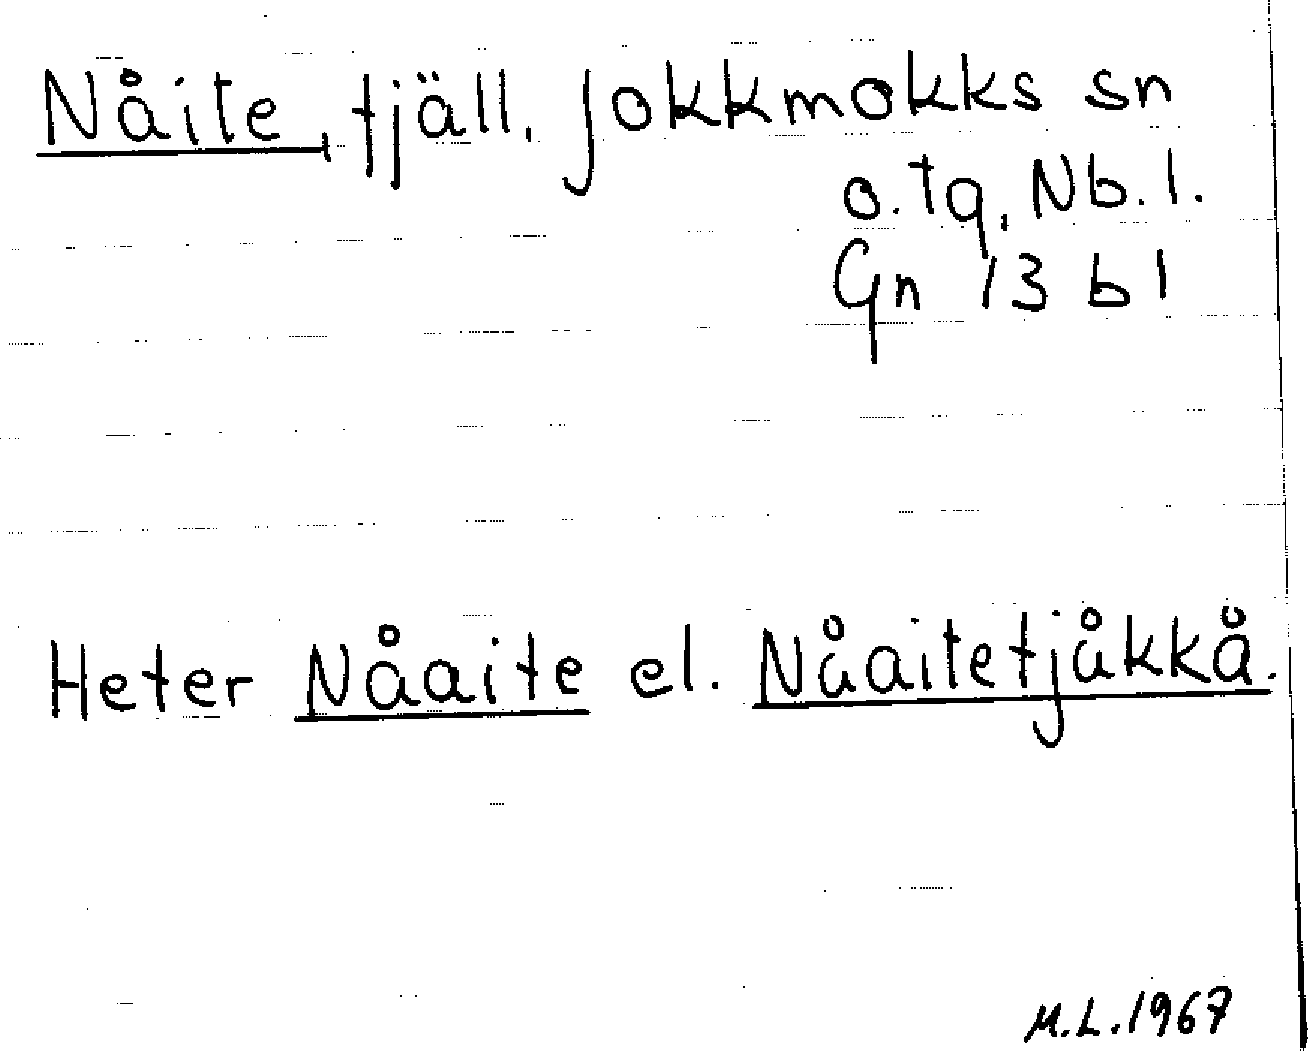 Nåite, fjäll. Jokkmokks sn
o. tg, Nb. l.
Gn 13 b 1
Heter Nåaite el. Nåaitetjåkkå.
M.L. 1967